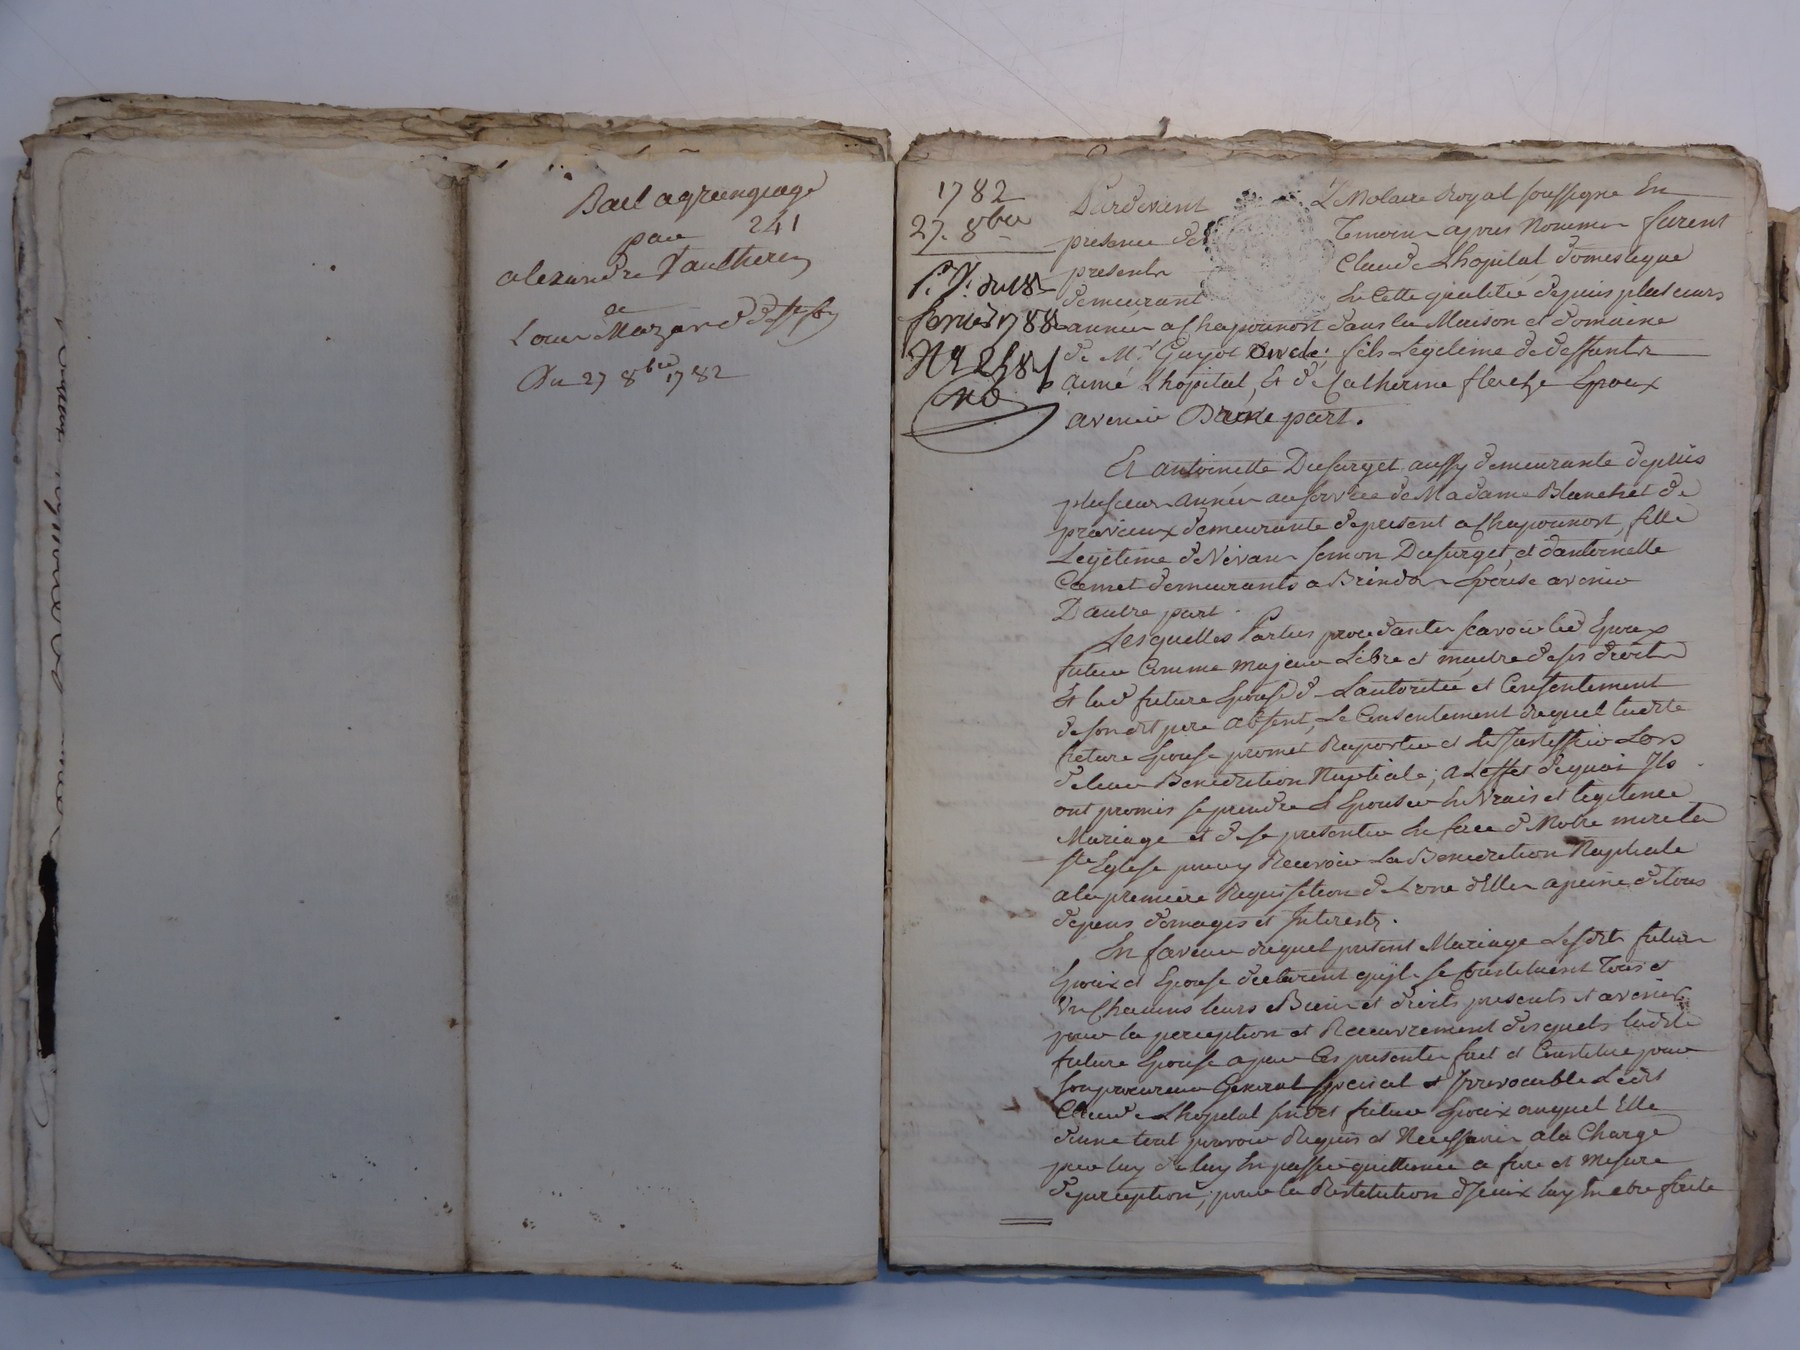 Bail a grangeage
241
par
alexandre Vautherin
a
Louis Mazard de Ste foy
Du 27 8bre 1782
1782
27. 8bre
Pardevant Le Notaire Royal soussigné En
presence des Temoins apres Nommés furent
presents Claude Lhopital domestique
demeurant En Cette qualitée depuis plusieurs
années a Chaponnost dans la Maison et domaine
de Mr. Guyot fils Legitime de deffunts
aimé Lhopital, Et de Catherine Epoux
avenir D'une part.
Et antoinette Dufurget aussy demeurante depuis
plusieurs années au service de Madame Blanchet de
pravieux demeurante depresent a Chaponnost, fille
Legitime de Vivans Simon Dufurget, et d'antoinette
Camet demeurants a Brindas Epouse avenir
D'autre part.
Lesquelles Parties procedantes scavoir led Epoux
futur Comme majeur Libre et maitre de ses droits
Et lad future Epouse de Lautoritée et Consentement
de son dit pere absent, Le Consentement duquel ladite
future Epouse promet Raporter et Justiffier Lors
de leur Benediction Nuptiale; a Leffet de quoi Ils
ont promis se prendre & Epouser En Vrais et legitime
Mariage et de se presenter En face de Notre mere la
Ste Eglise pour y Recevoir La Benediction Nuptiale
a la premiere Requisition de Lune d'Elles a peine de tous
depens domages et Interests.
En faveur duquel present Mariage Lesdits futurs
Epoux et Epouse declarent quyls se Constituent Tous et
Un Chacuns leurs Biens et droits presents et avenirs
pour la perception et Recouvrement desquels ladite
future Epouse a par Ces presentes fait et Constitué pour
son procureur General special et Irrevocable Ledit
Claude Lhopital sondit futur Epoux auquel Elle
donne tout pouvoir Requis et Necessaire a la Charge
par luy de luy En passer quittance a fure et Mesure
de perception, pour la Restitution d'Iceux luy En etre faite